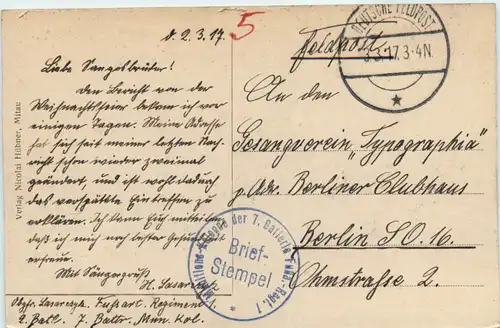 d. 2.3.17.
5
Liebe Sangesbrüder!
Den Bericht von der
Weihnachtsfeier bekam ich vor
einigen Tagen. Meine Adresse
hat sich seit meiner letzten Nach-
richt schon wieder zweimal
geändert, und ist wohl dadurch
das verspätete Eintreffen zu
erklären. Ich kann Euch mitteilen
daß ich mich noch bester Gesundheit
erfreue.
Mit Sängergruß
Obgfr. Fußart. Regiment 1
2. Batl. 7. Battr. Mun. Kol.
Verlag Nicolai Hübner, Mitau
Feldpost
DEUTSCHE FELDPOST
3.3.17.3-4N.
An den
Gesangverein „Typographia"
p. Adr. Berliner Clubhaus
Berlin S.O. 16.
Ohmstrasse 2.
der 7. Batterie Regt. 1
Brief-
Stempel